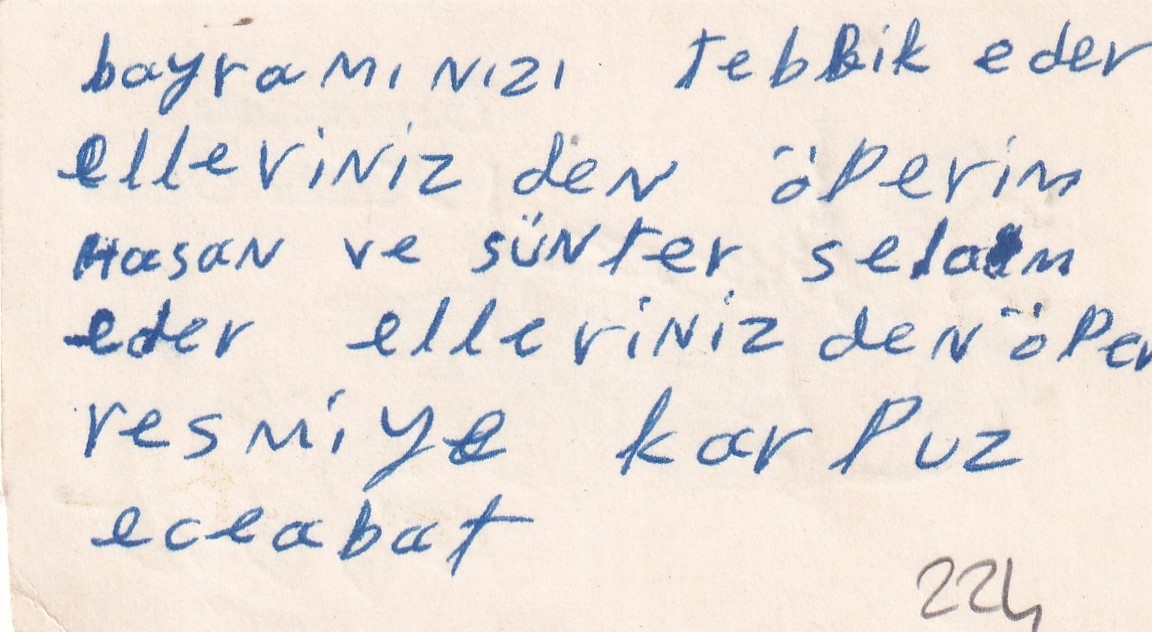 bayramınızı tebbik eder
elleriniz den öperim
Hasan ve sünter selam
eder elleriniz den öper
resmiye karpuz
eceabat
224